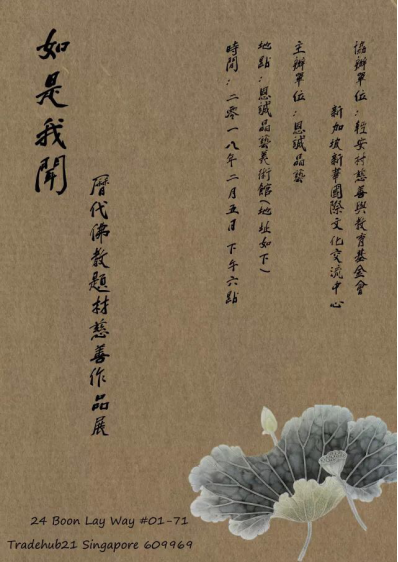 如是我聞
曆代佛教題材慈善作品展
時間：二零一八年二月五日下午六點
地點：恩誠晶藝美術館（地址如下）
主辦單位：恩誠晶藝
新加坡新華國際文化交流中心
協辦單位：輕安村慈善與教育基金會
24 Boon Lay Way #01-71
Tradehub21 Singapore 609969